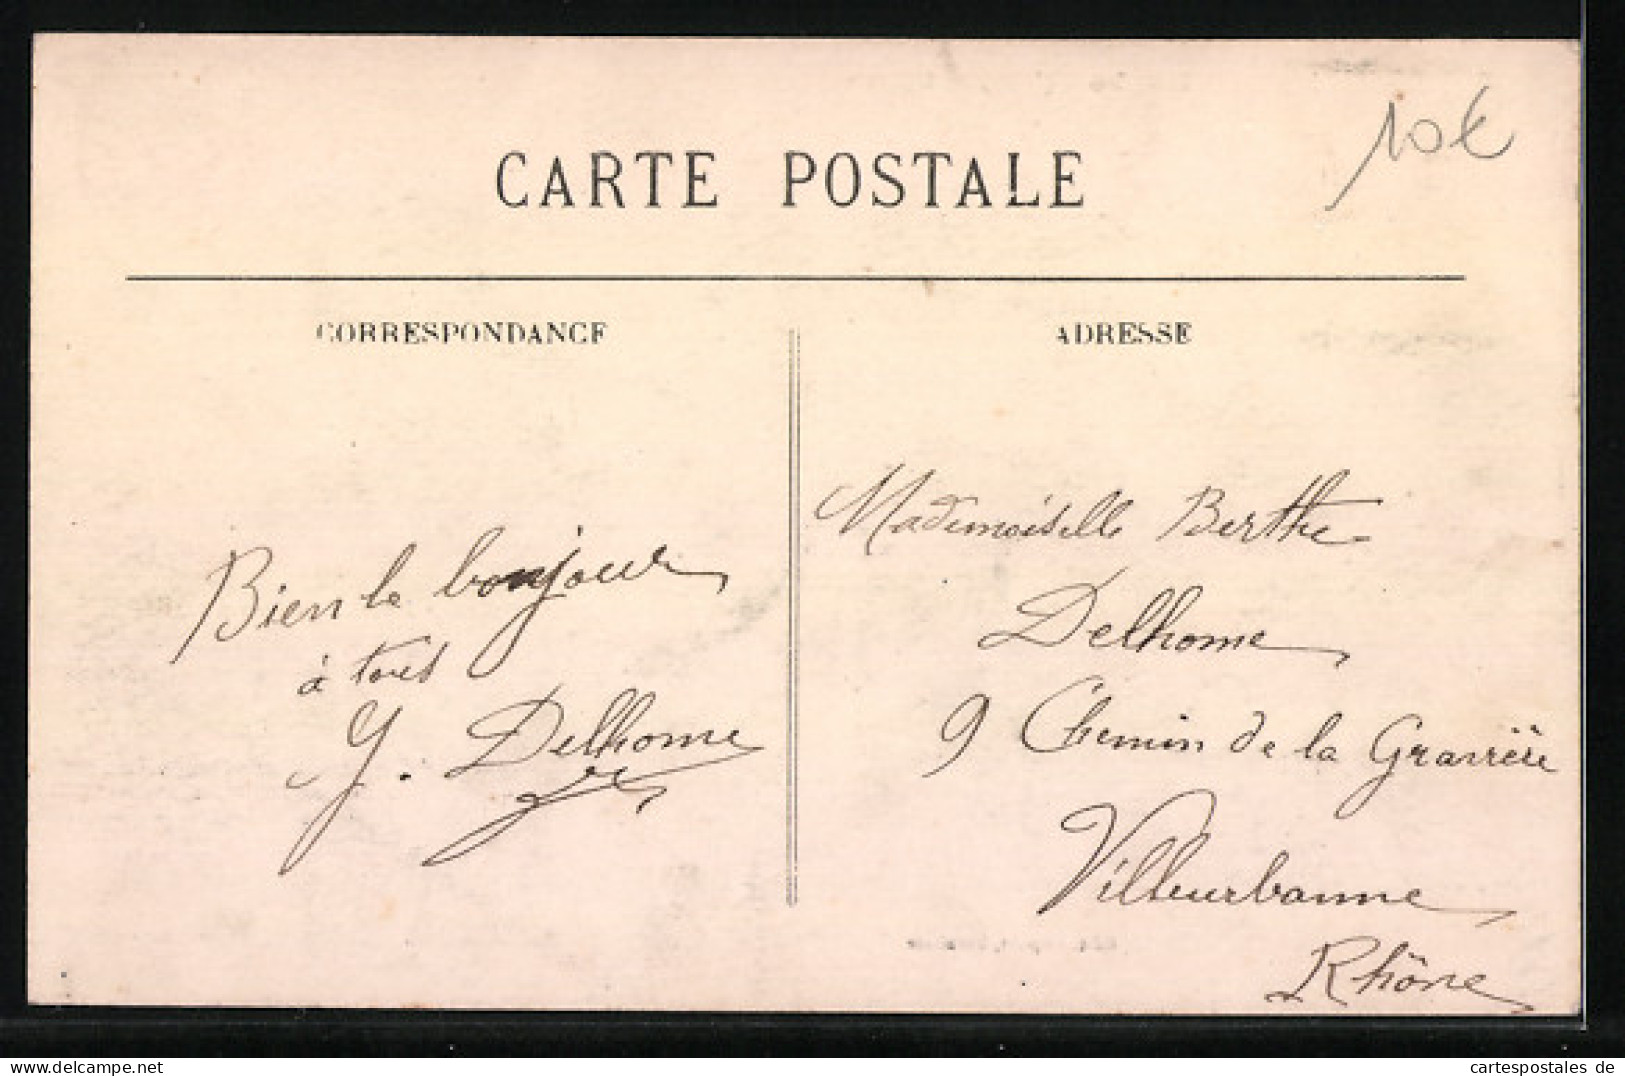 10€
CARTE POSTALE
CORRESPONDANCE
ADRESSE
Bien le bonjour
à tous
Y. Delhome
Mademoiselle Berthe
Delhome
9 Chemin de la Gravière
Villeurbanne
Rhône
www.delcampe.net
cartespostales de